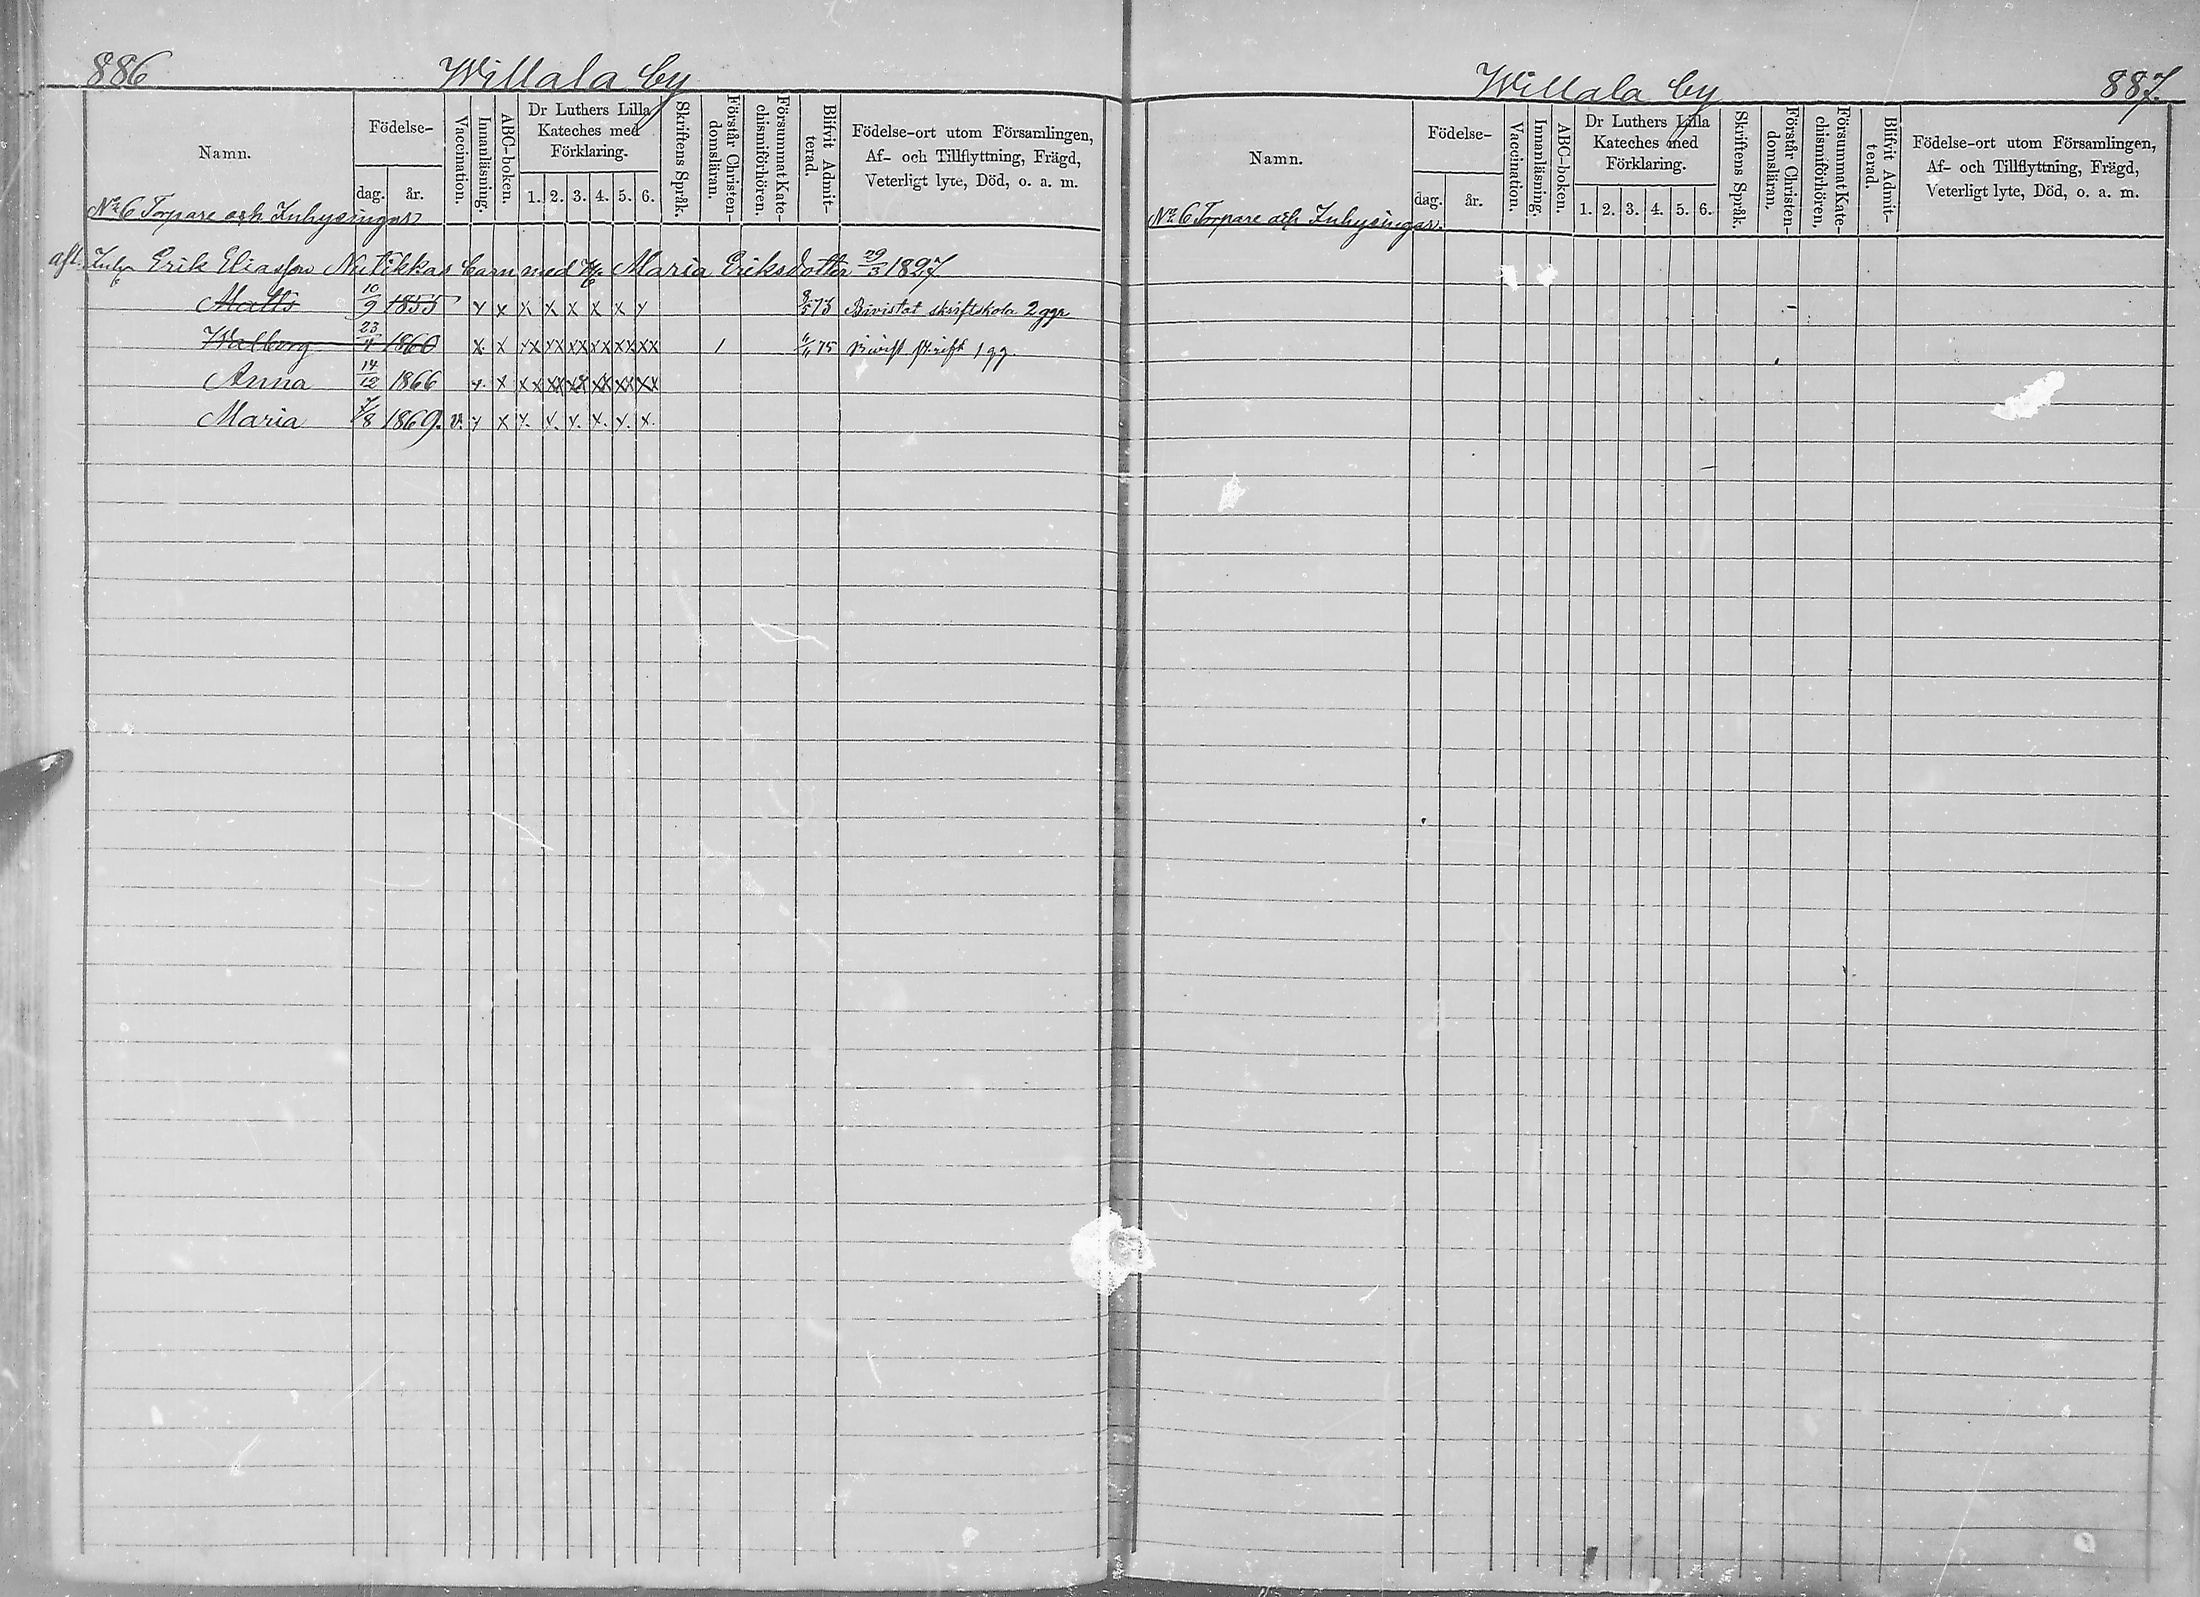 886
Willala by
Namn.
Födelse-
dag.
år.
Vaccination.
Innanläsning.
ABC-boken.
Dr Luthers Lilla
Kateches med
Förklaring.
1. 2. 3. 4. 5. 6.
Skriftens Språk.
Förstår Christen-
domsläran.
Försummat Kate-
chismiförhören.
Blifvit Admit-
terad.
Födelse-ort utom Församlingen,
Af- och Tillflyttning, Frägd,
Veterligt lyte, Död, o. a. m.
No 6 Torpare och Inhysingar
afl. Inhs Erik Eliasson Nutikkas barn med H. Maria Eriksdotter 29/3 1827
Matts 10/9 1855 x x x x x x x x 8/5 73 Bivistat skriftskola 2 ggr
Walborg 23/4 1860 x. x xx xx xx xx xx xx 1 11/11 75 Bivist skrift 1 gg.
Anna 14/12 1866 x. x xx xx xx xx xx xx
Maria 7/8 1869. v. x x x. x. x. x. x. x.
Willala by
887.
Namn.
Födelse-
dag.
år.
Vaccination.
Innanläsning.
ABC-boken.
Dr Luthers Lilla
Kateches med
Förklaring.
1. 2. 3. 4. 5. 6.
Skriftens Språk.
Förstår Christen-
domsläran.
Försummat Kate-
chismiförhören,
Blifvit Admit-
terad.
Födelse-ort utom Församlingen,
Af- och Tillflyttning, Frägd,
Veterligt lyte, Död, o. a. m.
No 6 Torpare och Inhysingar.